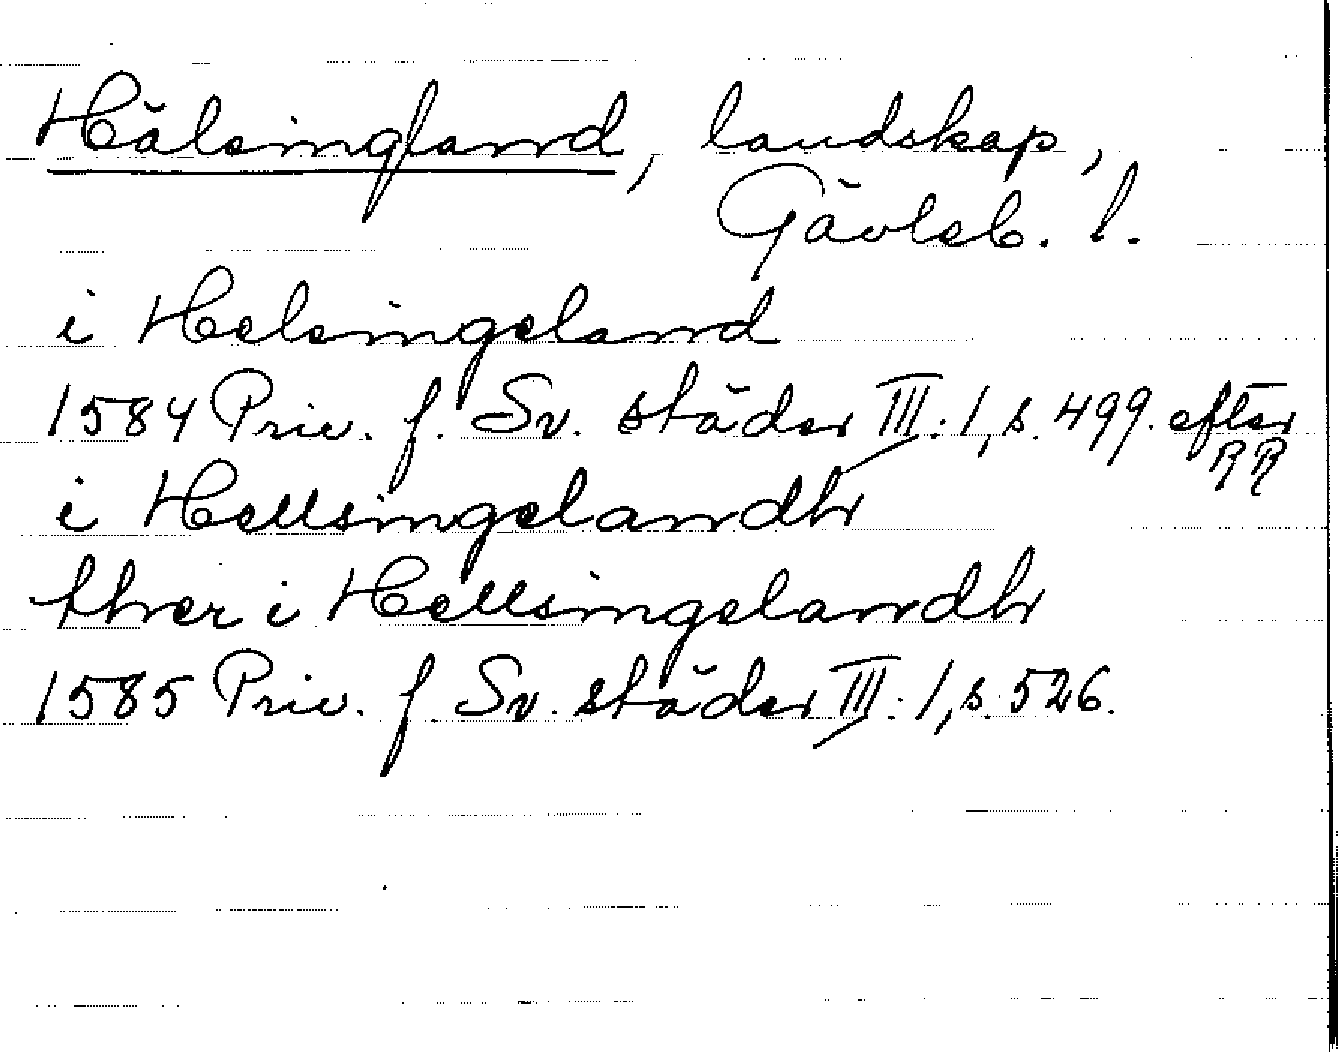 Hälsingland, landskap,
Gävleb. l.
i Helsingeland
1584 Priv. f. Sv. städer III:1, s. 499. efter
RR
i Hellsingelandh
thver i Hellsingelandh
1585 Priv. f. Sv. städer III:1, s. 526.